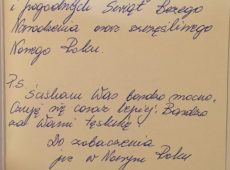 i pogodnych Świąt Bożego
Narodzenia oraz szczęśliwego
Nowego Roku.
P.S.
Ściskam Was bardzo mocno,
Czuję się coraz lepiej. Bardzo
za Wami tęsknię!
Do zobaczenia
już w Nowym Roku